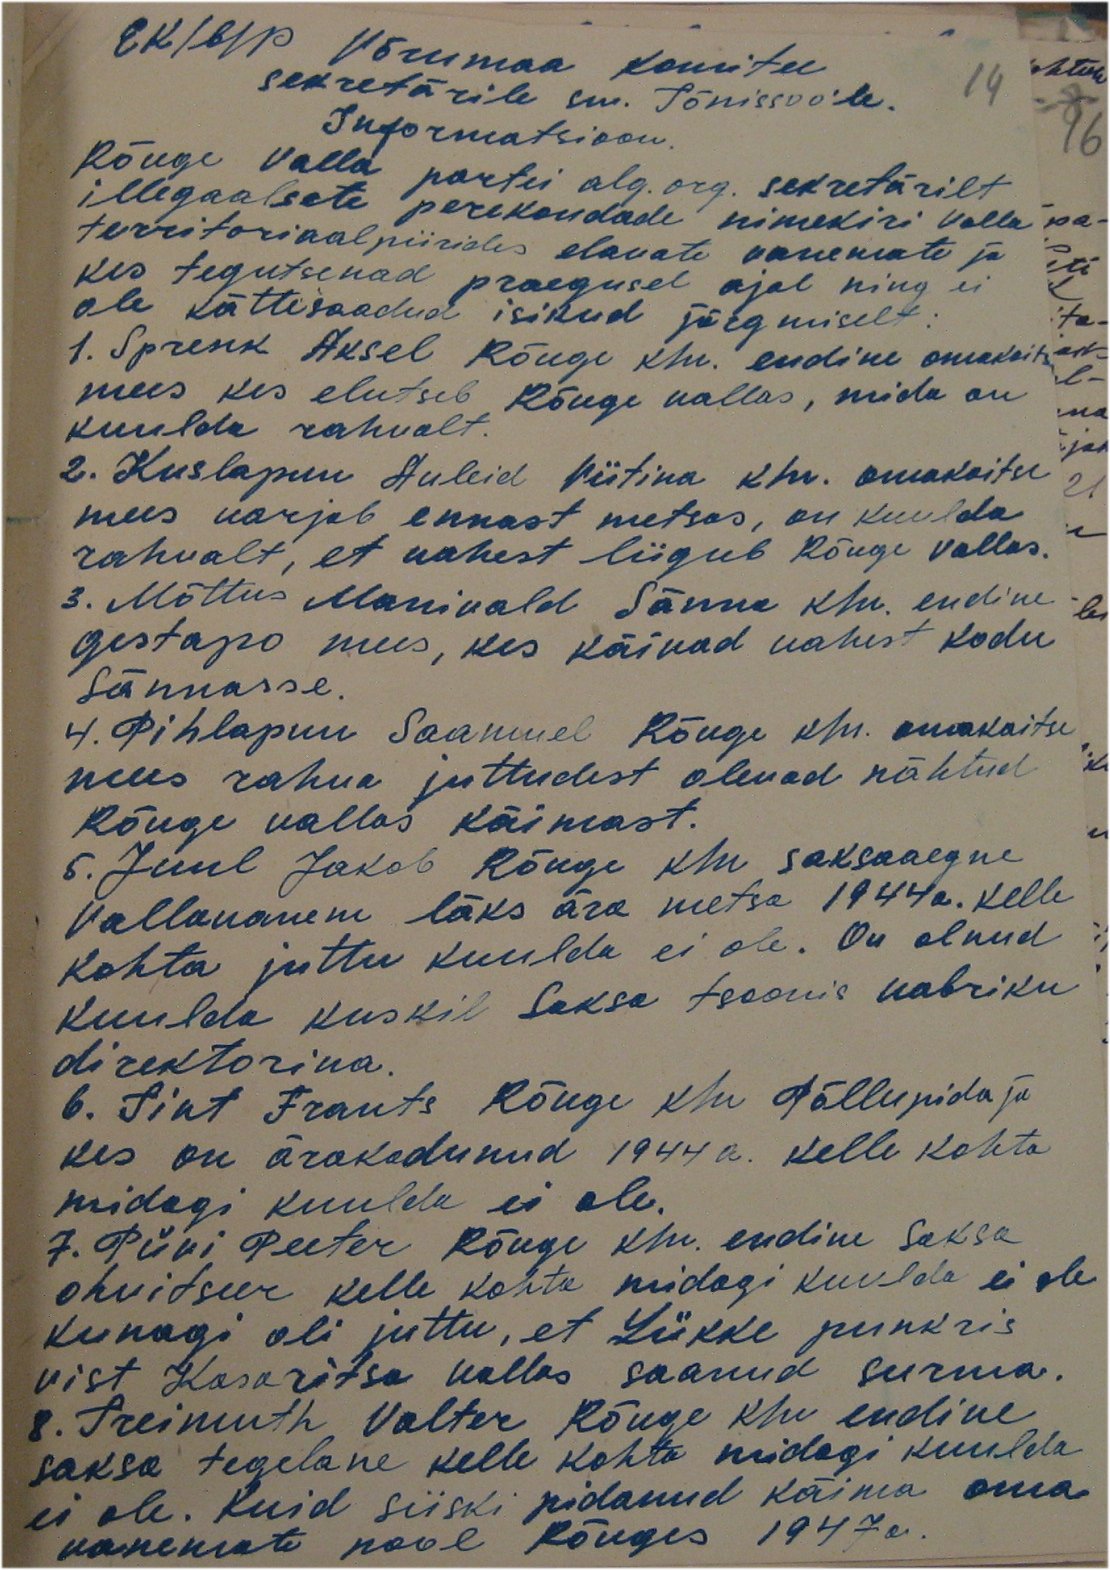 EK/b/P Võrumaa Komitee
14
sekretärile sm. Tõnissoo'le.
96
Informatsioon.
Rõuge Valla partei alg. org. sekretärilt
illegaalsete perekondade nimekiri valla
territoriaalpiirides elavate vanemate ja
kes tegutsenad praegusel ajal ning ei
ole kättesaadud isikud järgmiselt:
1. Sprenk Aksel Rõuge khr. endine omakaitse
mees kes elutseb Rõuge vallas, mida on
kuulda rahvalt.
2. Kuslapuu Auleid Viitina khr. omakaitse
mees varjab ennast metsas, on kuulda
rahvalt, et vahest liigub Rõuge vallas.
3. Mõttus Manivald Sänna khr. endine
gestapo mees, kes käivad vahest kodu
Sännasse.
4. Pihlapuu Saamuel Rõuge khr. omakaitse
mees rahva juttudest olevad nähtud
Rõuge vallas käimast.
5. Juul Jakob Rõuge khr saksaaegne
Vallavanem läks ära metsa 1944a. kelle
kohta juttu kuulda ei ole. On olnud
kuulda kuskil Saksa tsoonis vabriku
direktorina.
6. Tint Frants Rõuge khr Põllupidaja
kes on ärakadunud 1944 a. kelle kohta
midagi kuulda ei ole.
7. Piivi Peeter Rõuge khr. endine Saksa
ohvitseer kelle kohta midagi kuulda ei ole
kunagi oli juttu, et Lükke punkris
vist Kasaritsa vallas saanud surma.
8. Treimuth Valter Rõuge khr endine
saksa tegelane kelle kohta midagi kuulda
ei ole. Kuid siiski pidanud käima oma
vanemate pool Rõuges 1947a.